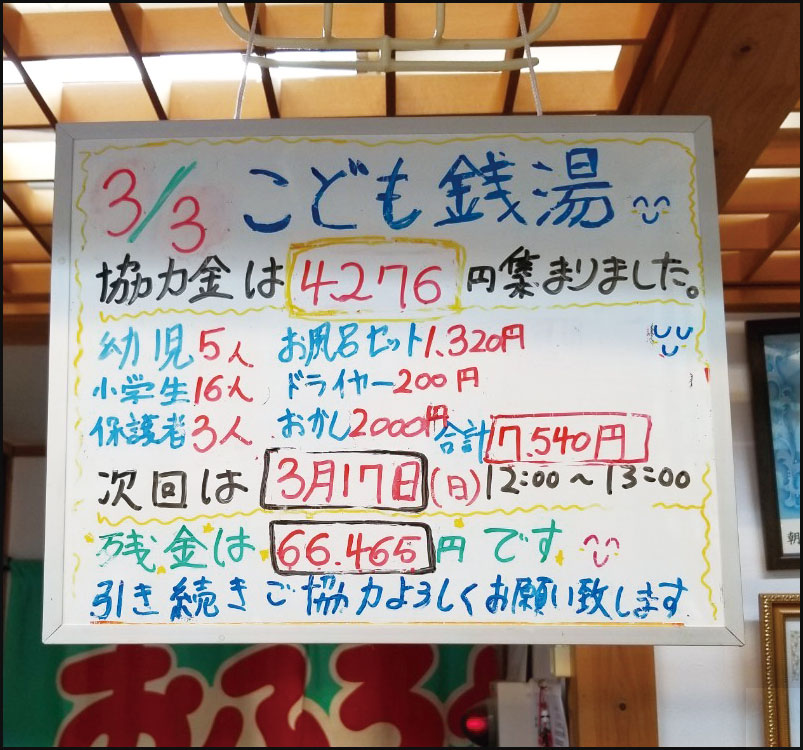 3/3 こども銭湯
協力金は 4.276 円集まりました。
幼児5人 お風呂セット1.320円
小学生16人 ドライヤー200円
保護者3人 おかし2000円 合計 7.540円
次回は 3月17日(日)12:00~13:00
残金は 66.465 円です
引き続きご協力よろしくお願い致します
おふろ
朝